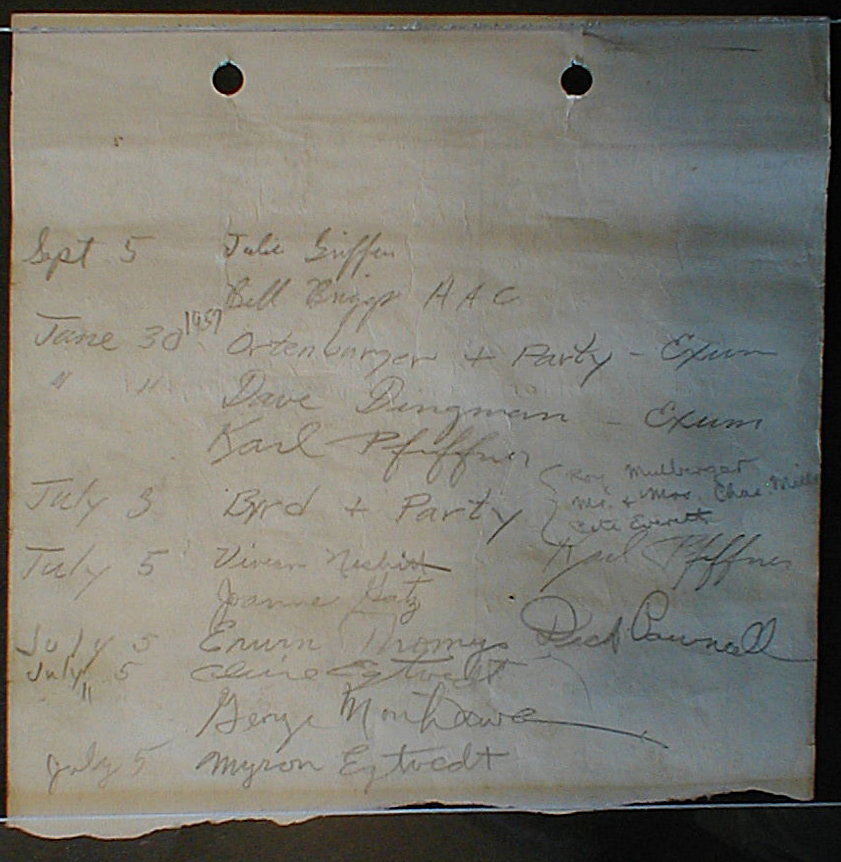 Sept 5 Julie Griffin
Bill Briggs A A C
June 30 1957 Ortenburger + Party - Exum
" " Dave Dingman - Exum
Karl Pfiffner
Roy Mulberger
Mr. + Mrs. Chas. Mills
July 3 Byrd + Party
Pete Everett
July 5 Vivian Nesbitt Karl Pfiffner
Joanne
July 5 Erwin Thomys Dick Pownall
July 5 Egtvedt
" George
July 5 Myron Egtvedt